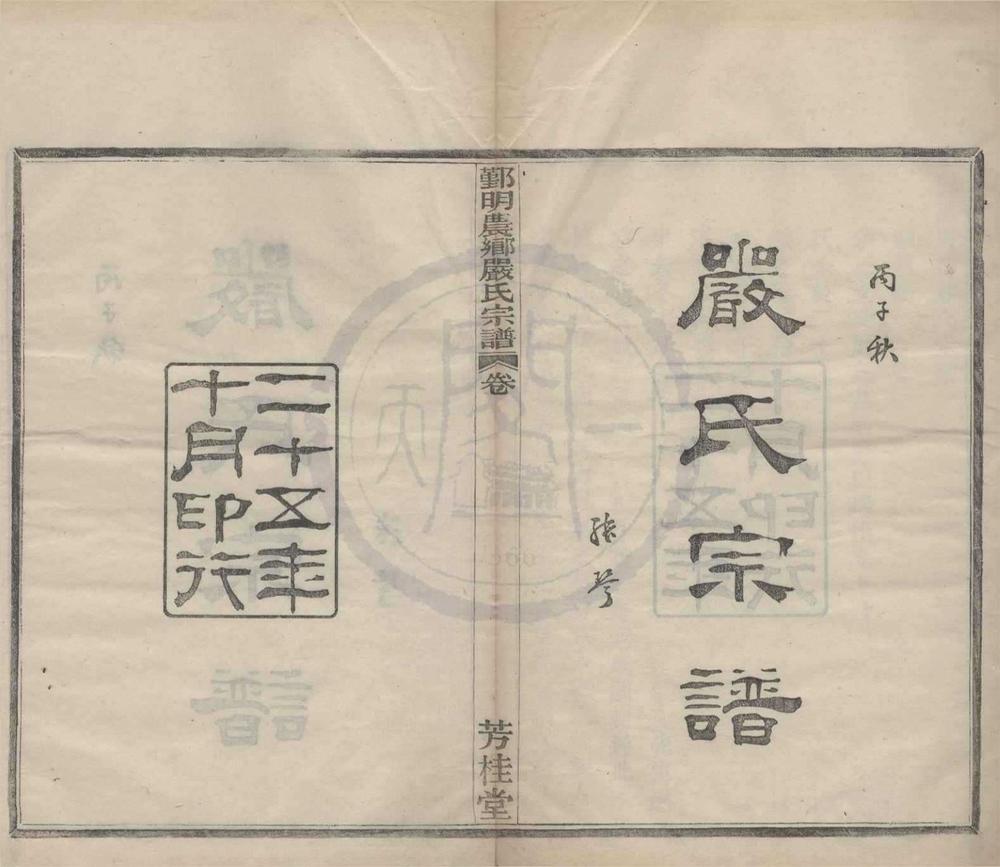 丙子秋
嚴氏宗譜
張琴
鄞明農鄉嚴氏宗譜 卷
芳桂堂
二十五年
十月印行